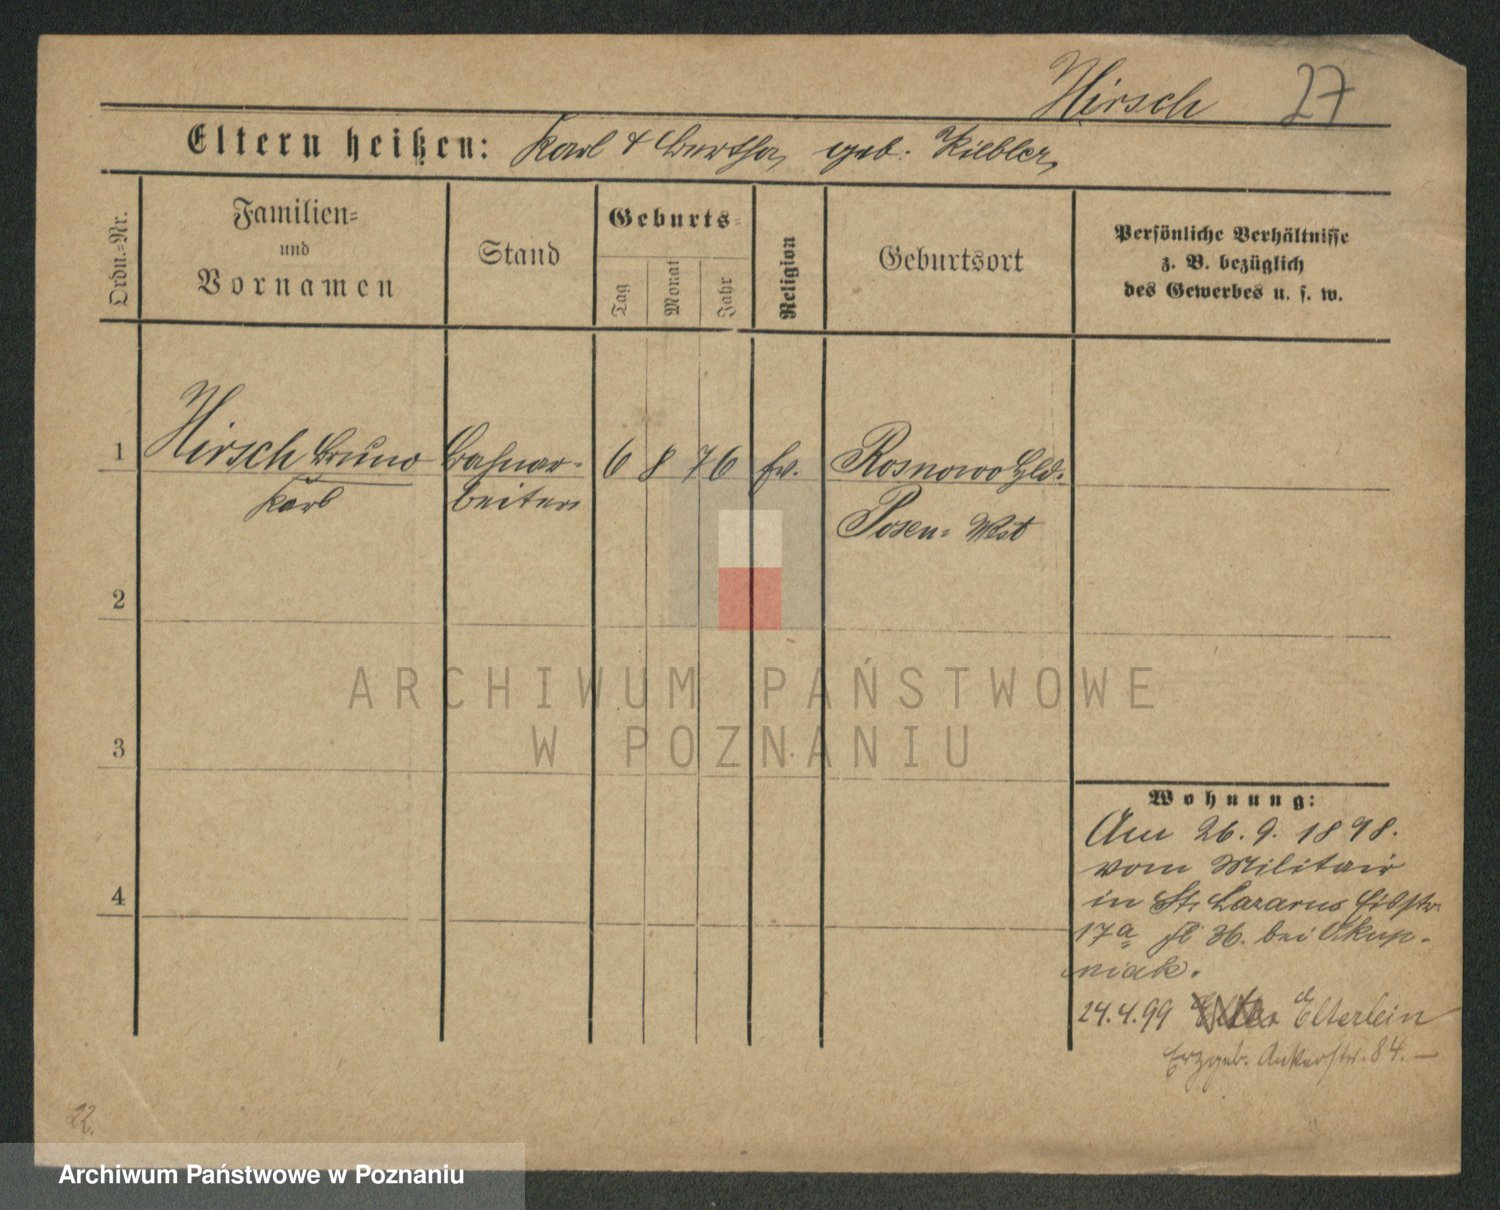 Hirsch 27
Eltern heißen: Karl & Bertha, geb. Kiebler,
Ordn.=Nr.
Familien=
und
Vornamen
Stand
Geburts=
Tag
Monat
Jahr
Religion
Geburtsort
Persönliche Verhältnisse
z. B. bezüglich
des Gewerbes u. s. w.
1 Hirsch Bruno Bahnar- 6 8 76 ev. Rosnowo Hld.
Karl beiter Posen- West
2
ARCHIWUM PAŃSTWOWE
W POZNANIU
3
Wohnung:
Am 26. 9. 1898.
vom Militair
in St. Lazarus
17a 36. bei Skup-
niak.
24.4.99 Elterlein
Erzgeb. 84. —
4
22.
Archiwum Państwowe w Poznaniu